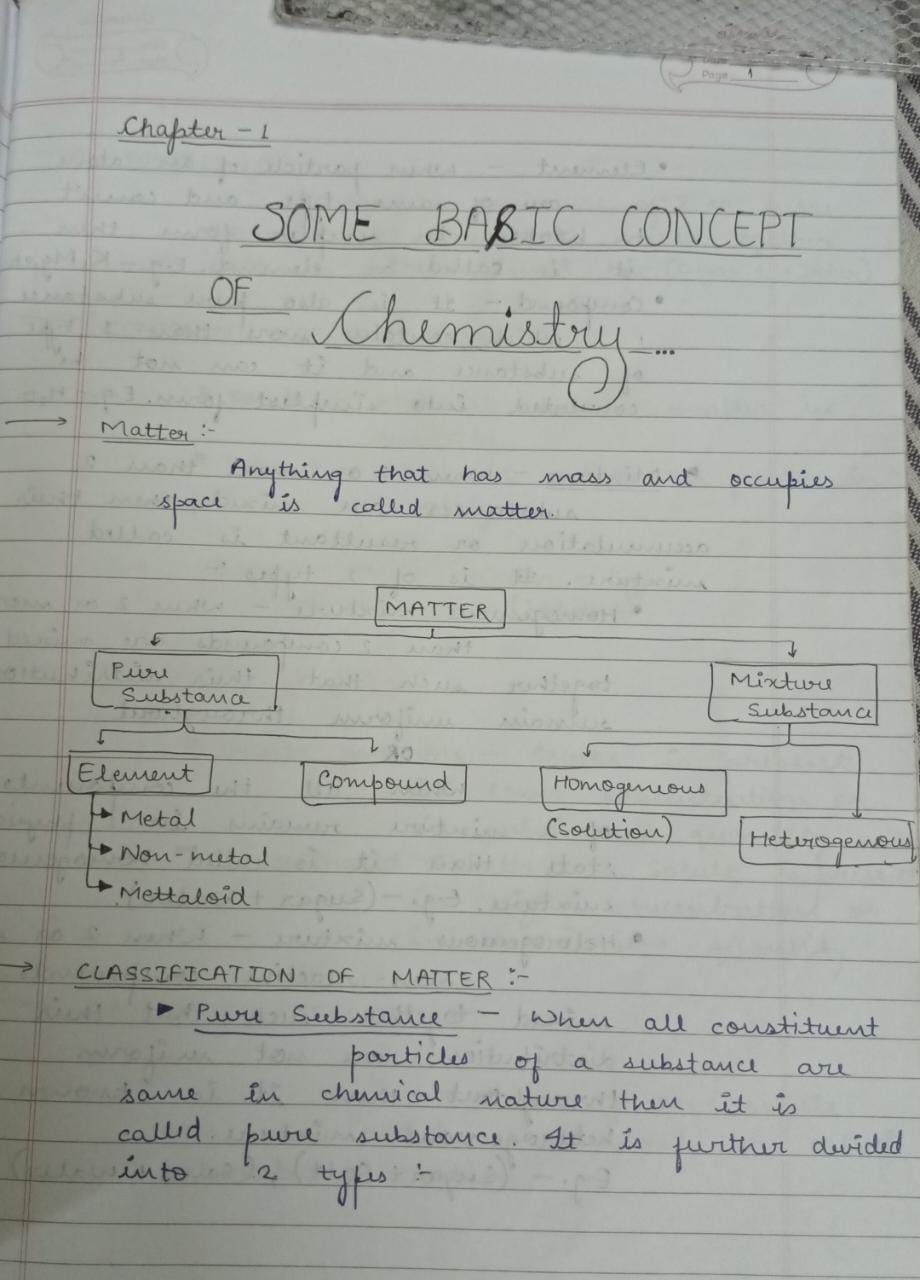 Page 1
Chapter - 1
SOME BASIC CONCEPT
OF Chemistry...
Matter :-
Anything that has mass and occupies
space is called matter.
MATTER
Pure
Substance
Mixture
Substance
Element
Compound
Homogenous
(Solution)
Heterogenous
Metal
Non-metal
Mettaloid
CLASSIFICATION OF MATTER :-
Pure Substance - when all constituent
particles of a substance are
same in chemical nature then it is
called pure substance. It is further divided
into 2 types :-